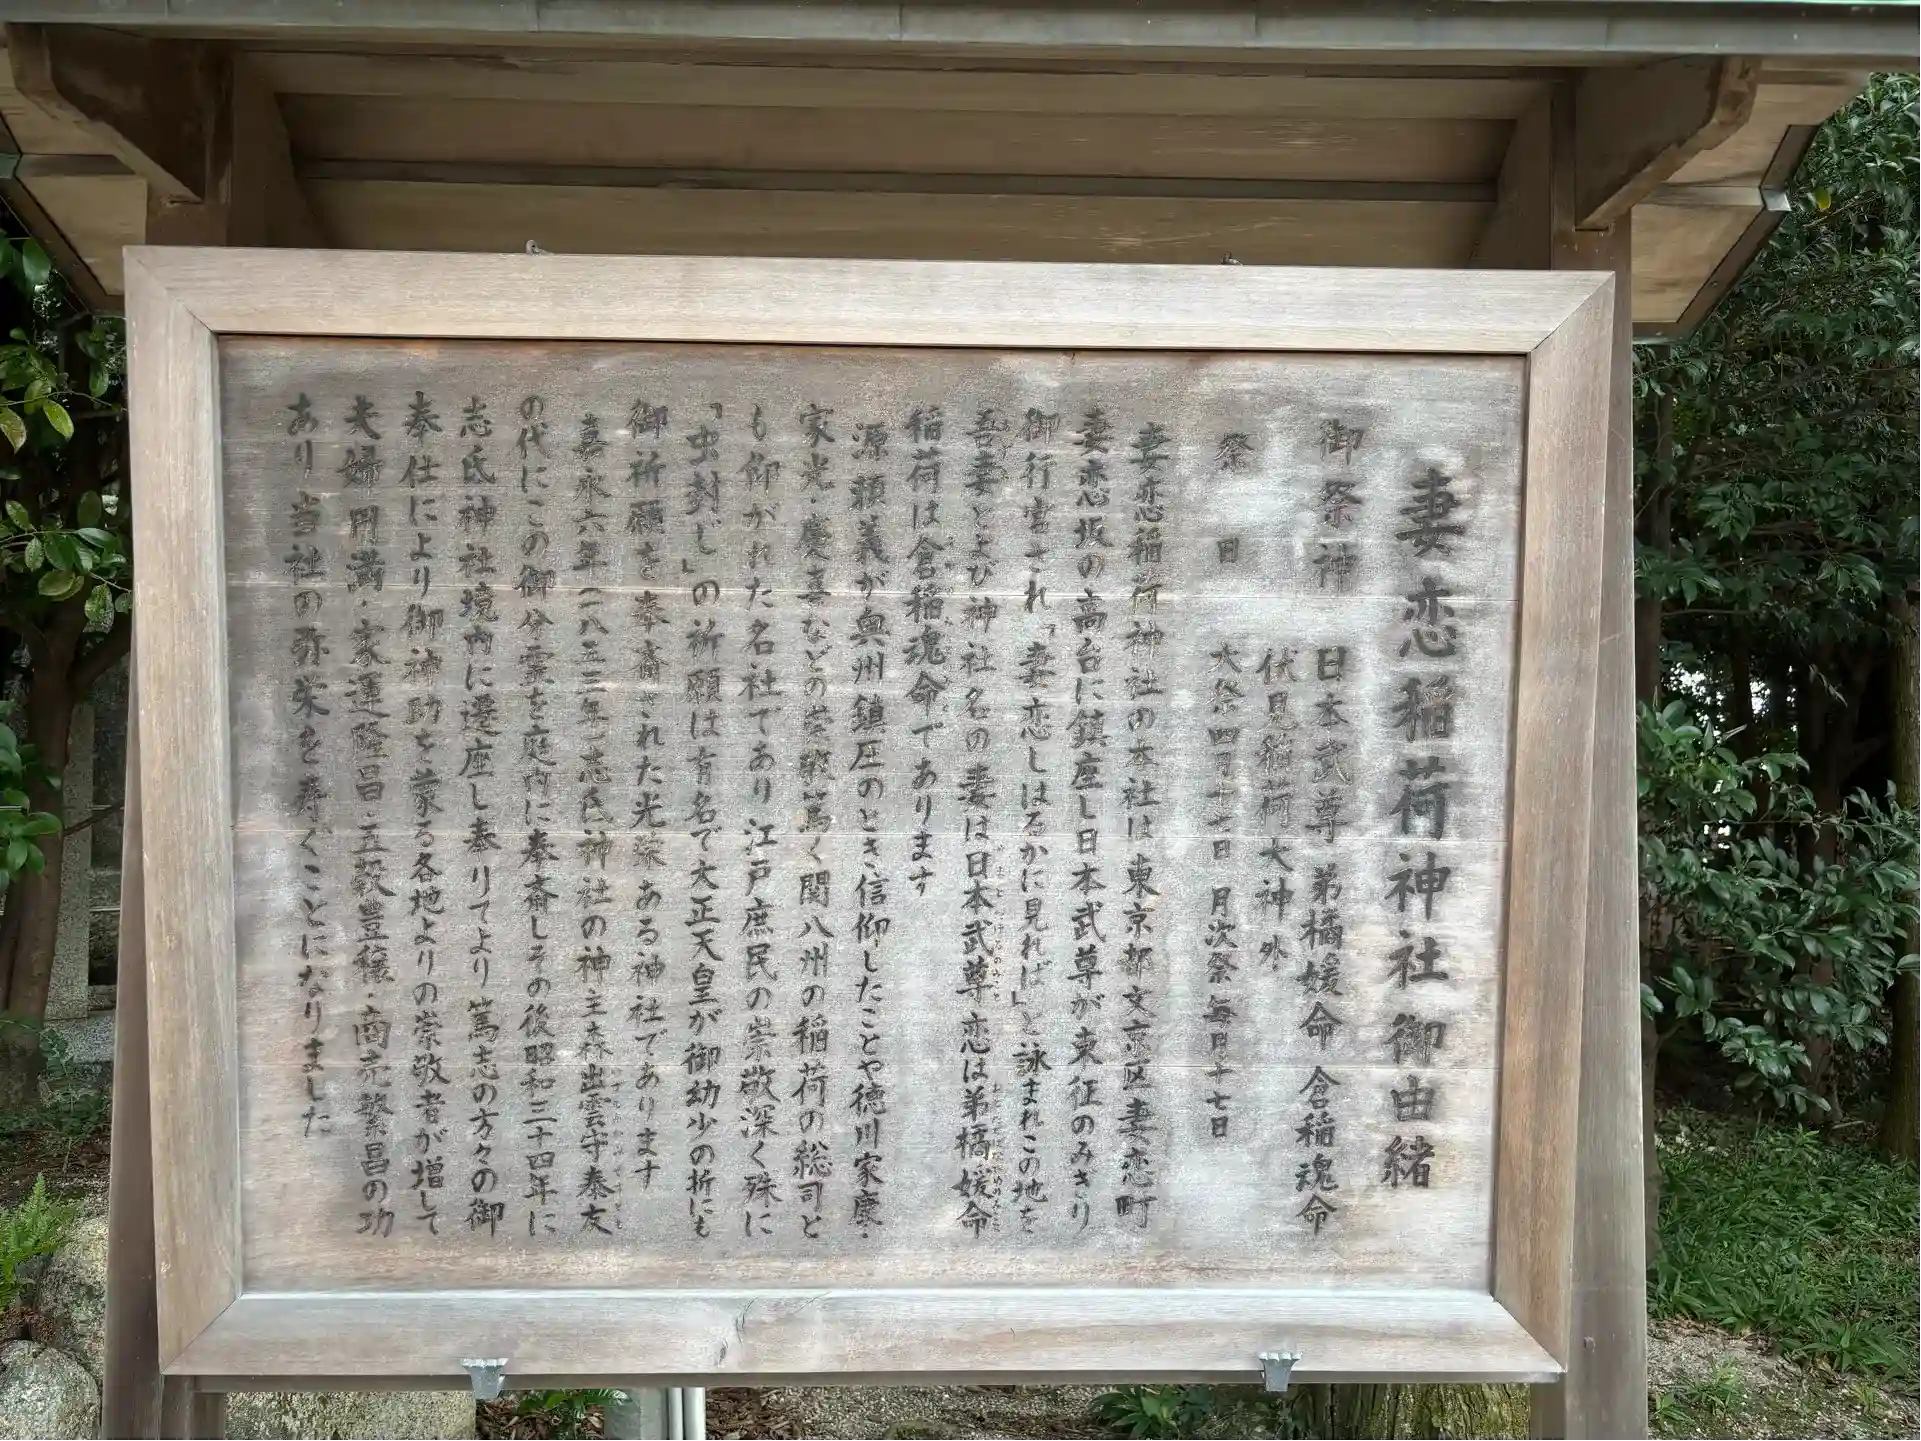 妻恋稲荷神社御由緒
御祭神 日本武尊 弟橘媛命 倉稲魂命
伏見稲荷大神 外
祭日 大祭四月十七日 月次祭毎月十七日
妻恋稲荷神社の本社は東京都文京区妻恋町
妻恋坂の高台に鎮座し日本武尊が東征のみぎり
御行宮され「妻恋しはるかに見れば」と詠まれこの地を
吾妻とよび神社名の妻は日本武尊 恋は弟橘媛命
稲荷は倉稲魂命であります
源頼義が奥州鎮圧のとき信仰したことや徳川家康・
家光・慶喜などの崇敬篤く関八州の稲荷の総司と
も仰がれた名社であり江戸庶民の崇敬深く殊に
「虫封じ」の祈願は有名で大正天皇が御幼少の折にも
御祈願を奉斎された光栄ある神社であります
嘉永六年(一八五三年)志氐神社の神主森出雲守泰友
の代にこの御分霊を庭内に奉斎しその後昭和三十四年に
志氐神社境内に遷座し奉りてより篤志の方々の御
奉仕により御神助を蒙る各地よりの崇敬者が増して
夫婦円満・家運隆昌・五穀豊穣・商売繁昌の功
あり当社の弥栄を寿ぐことになりました